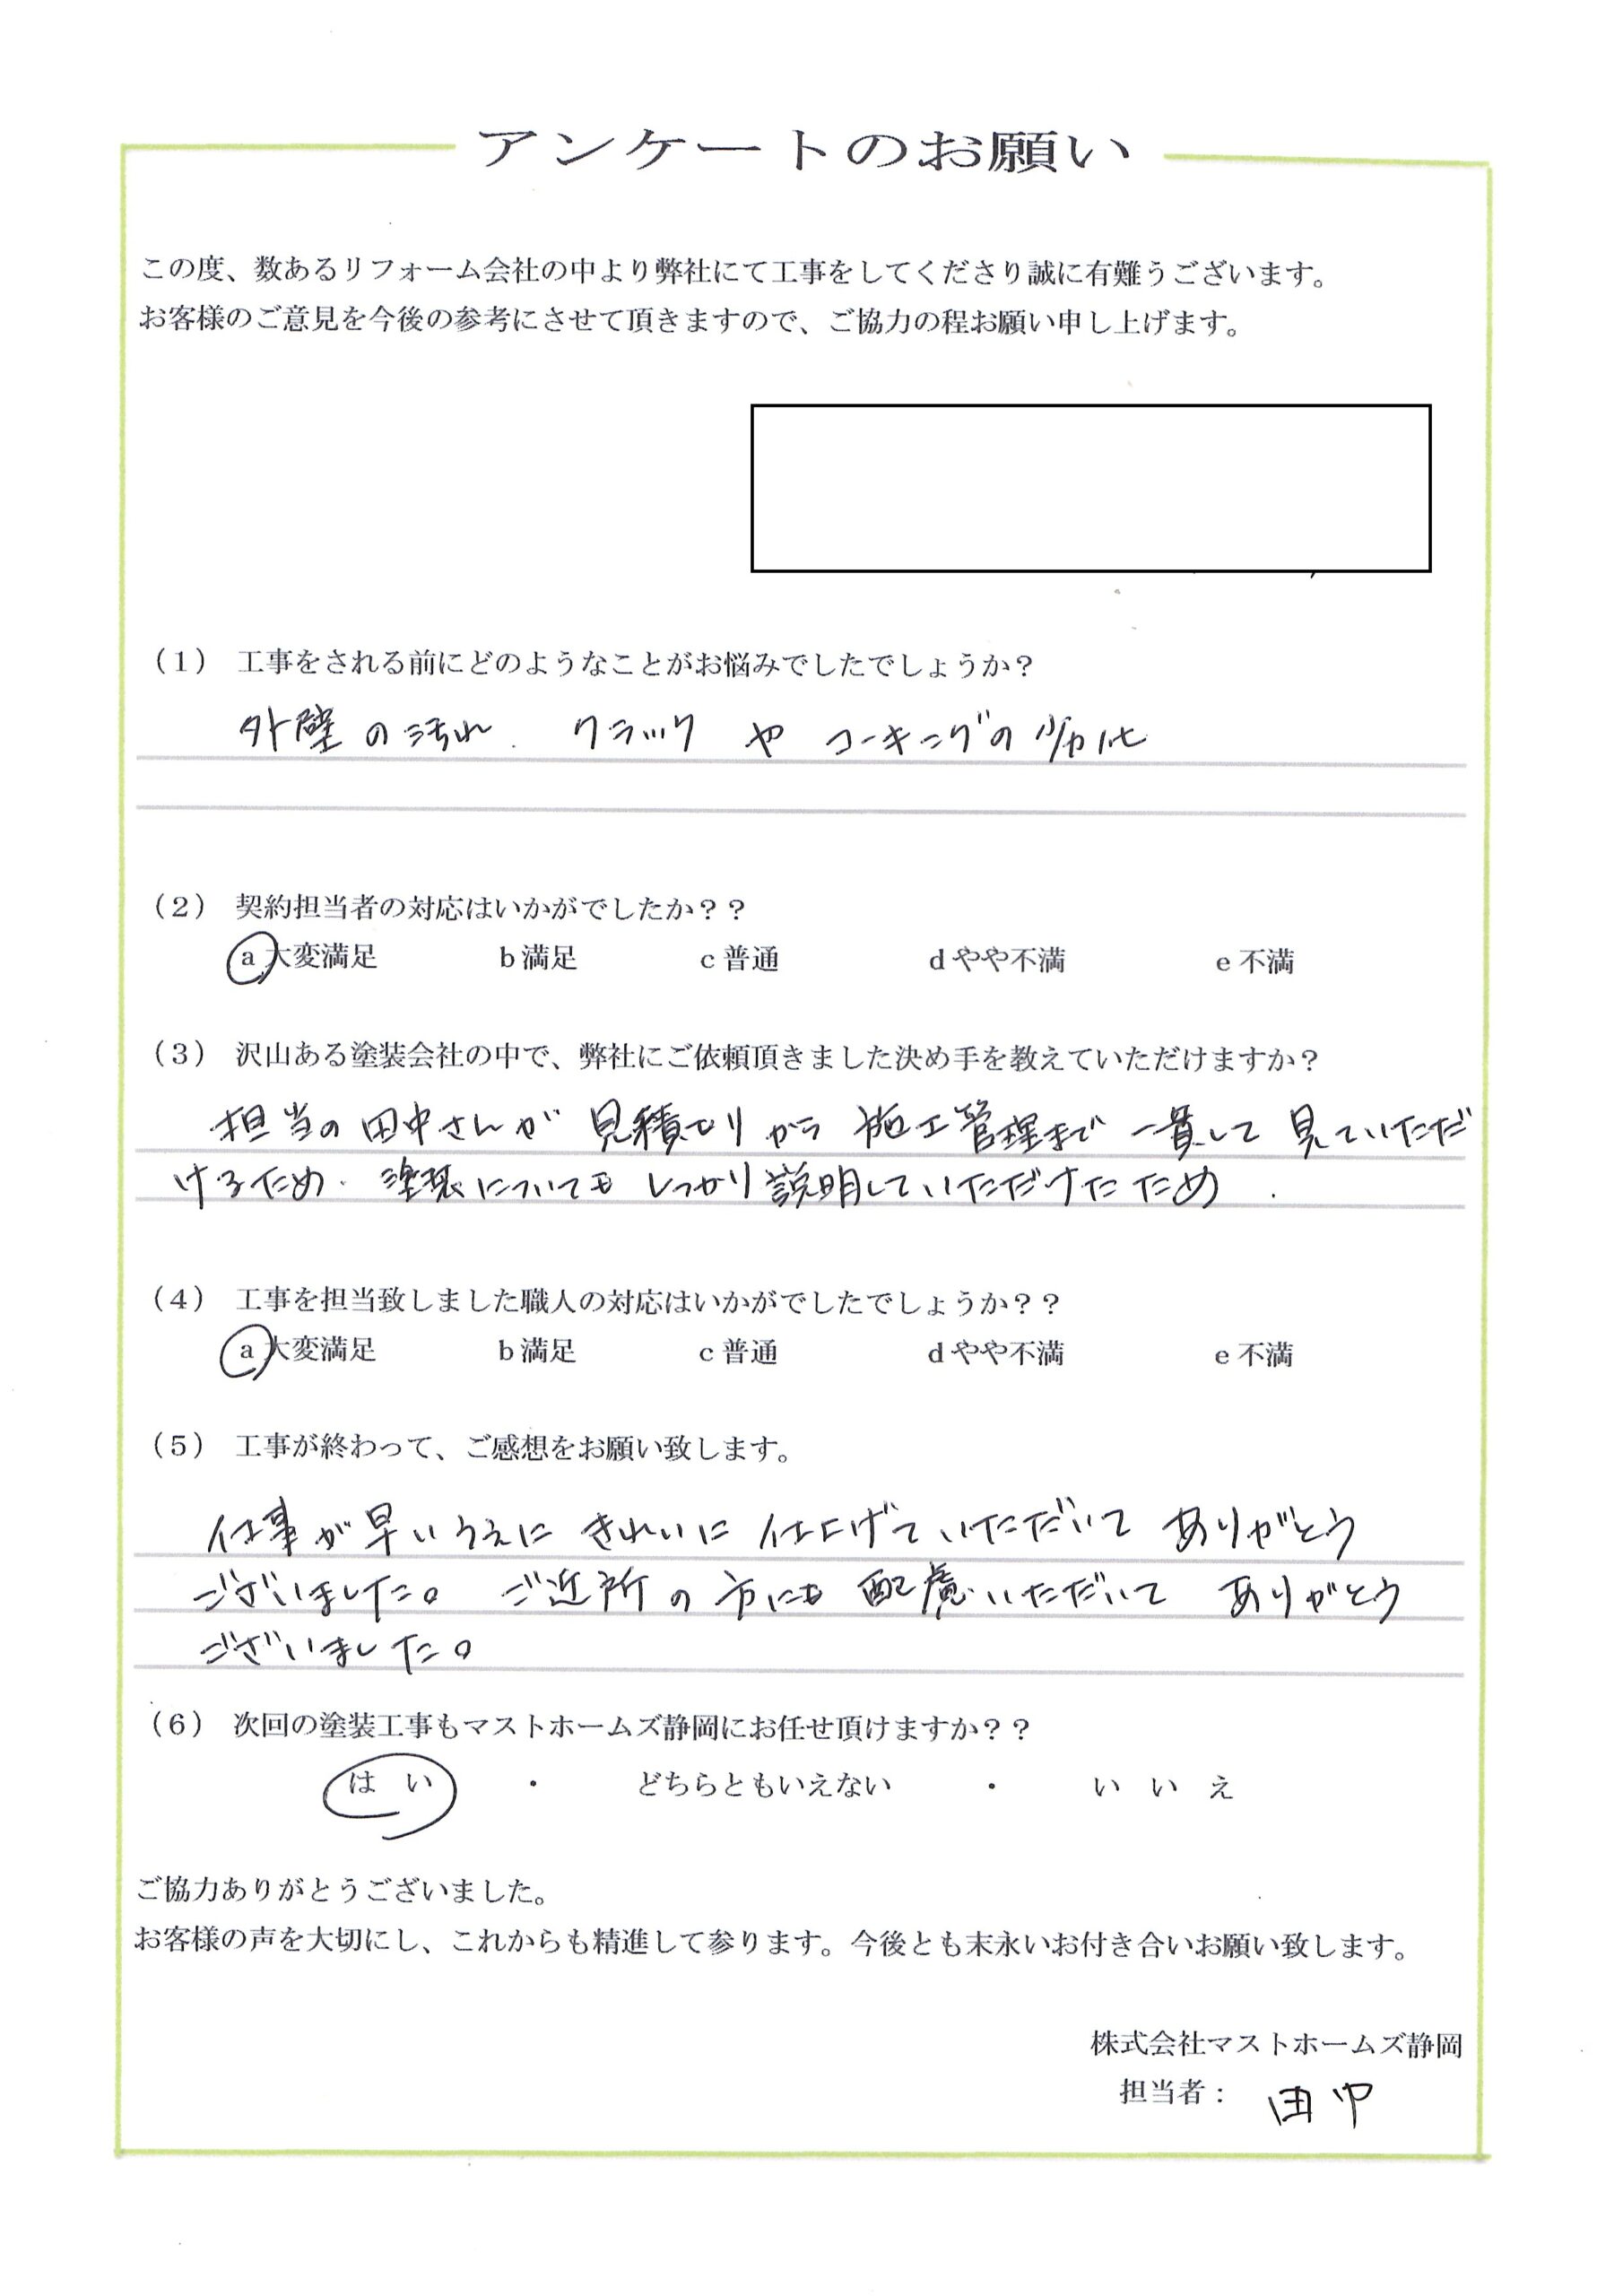 アンケートのお願い
この度、数あるリフォーム会社の中より弊社にて工事をしてくださり誠に有難うございます。
お客様のご意見を今後の参考にさせて頂きますので、ご協力の程お願い申し上げます。
（1） 工事をされる前にどのようなことがお悩みでしたでしょうか？
外壁の汚れ． クラック や コーキングの劣化
（2） 契約担当者の対応はいかがでしたか？？
a 大変満足 b 満足 c 普通 d やや不満 e 不満
（3） 沢山ある塗装会社の中で、弊社にご依頼頂きました決め手を教えていただけますか？
担当の田中さんが 見積もりから 施工管理まで 一貫して 見ていただ
けるため． 塗装についても しっかり説明していただけたため．
（4） 工事を担当致しました職人の対応はいかがでしたでしょうか？？
a 大変満足 b 満足 c 普通 d やや不満 e 不満
（5） 工事が終わって、ご感想をお願い致します。
仕事が早いうえに きれいに 仕上げていただいて ありがとう
ございました。 ご近所の方にも 配慮いただいて ありがとう
ございました。
（6） 次回の塗装工事もマストホームズ静岡にお任せ頂けますか？？
は い ・ どちらともいえない ・ い い え
ご協力ありがとうございました。
お客様の声を大切にし、これからも精進して参ります。今後とも末永いお付き合いお願い致します。
株式会社マストホームズ静岡
担当者： 田中